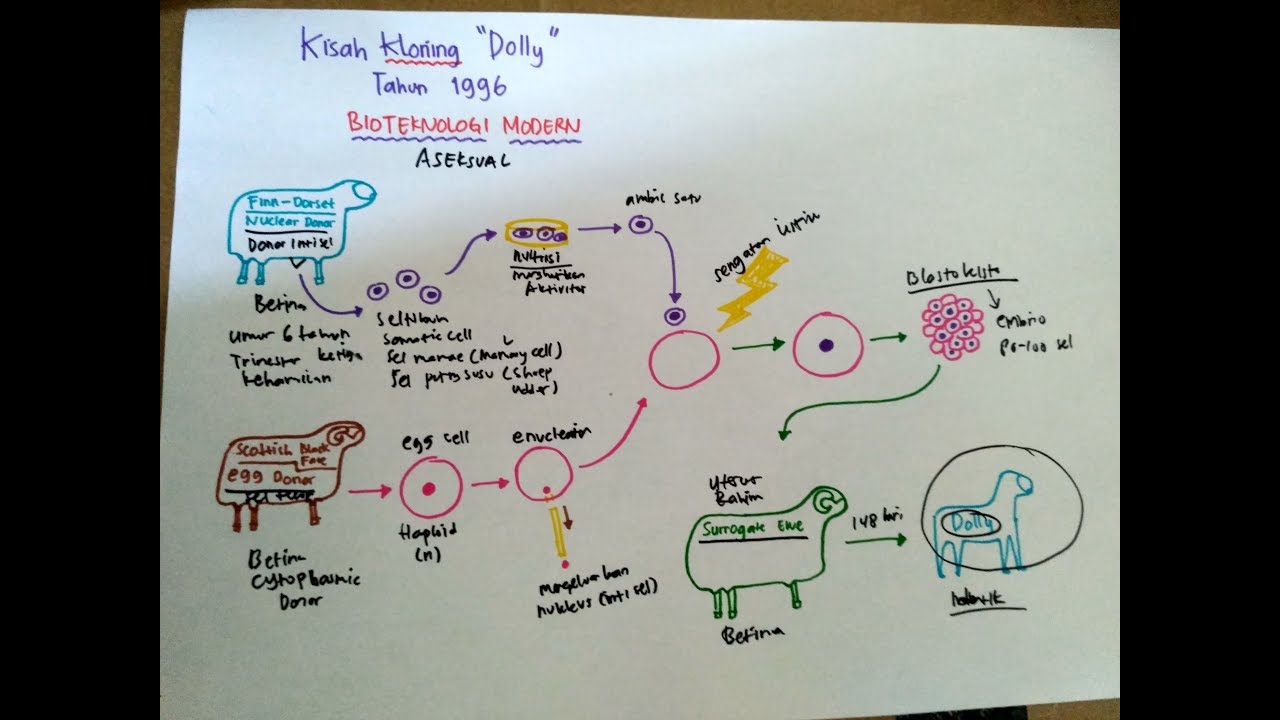 Kisah Kloning "Dolly"
Tahun 1996
BIOTEKNOLOGI MODERN
ASEKSUAL
Finn-Dorset
Nuclear Donor
Donor Inti sel
Betina
umur 6 tahun
Trimester ketiga
kehamilan
Somatic cell
(Mamary cell)
Sel susu (Sheep
udder)
nutrisi
Aktivitas
ambil satu
sengatan listrik
Blastokista
embrio
sel
Scottish Black
Face
egg Donor
Betina
Cytoplasmic
Donor
egg cell
Haploid
(n)
enucleation
mengeluarkan
nukleus (inti sel)
uterus
Rahim
Surrogate Ewe
Betina
148 hari
Dolly